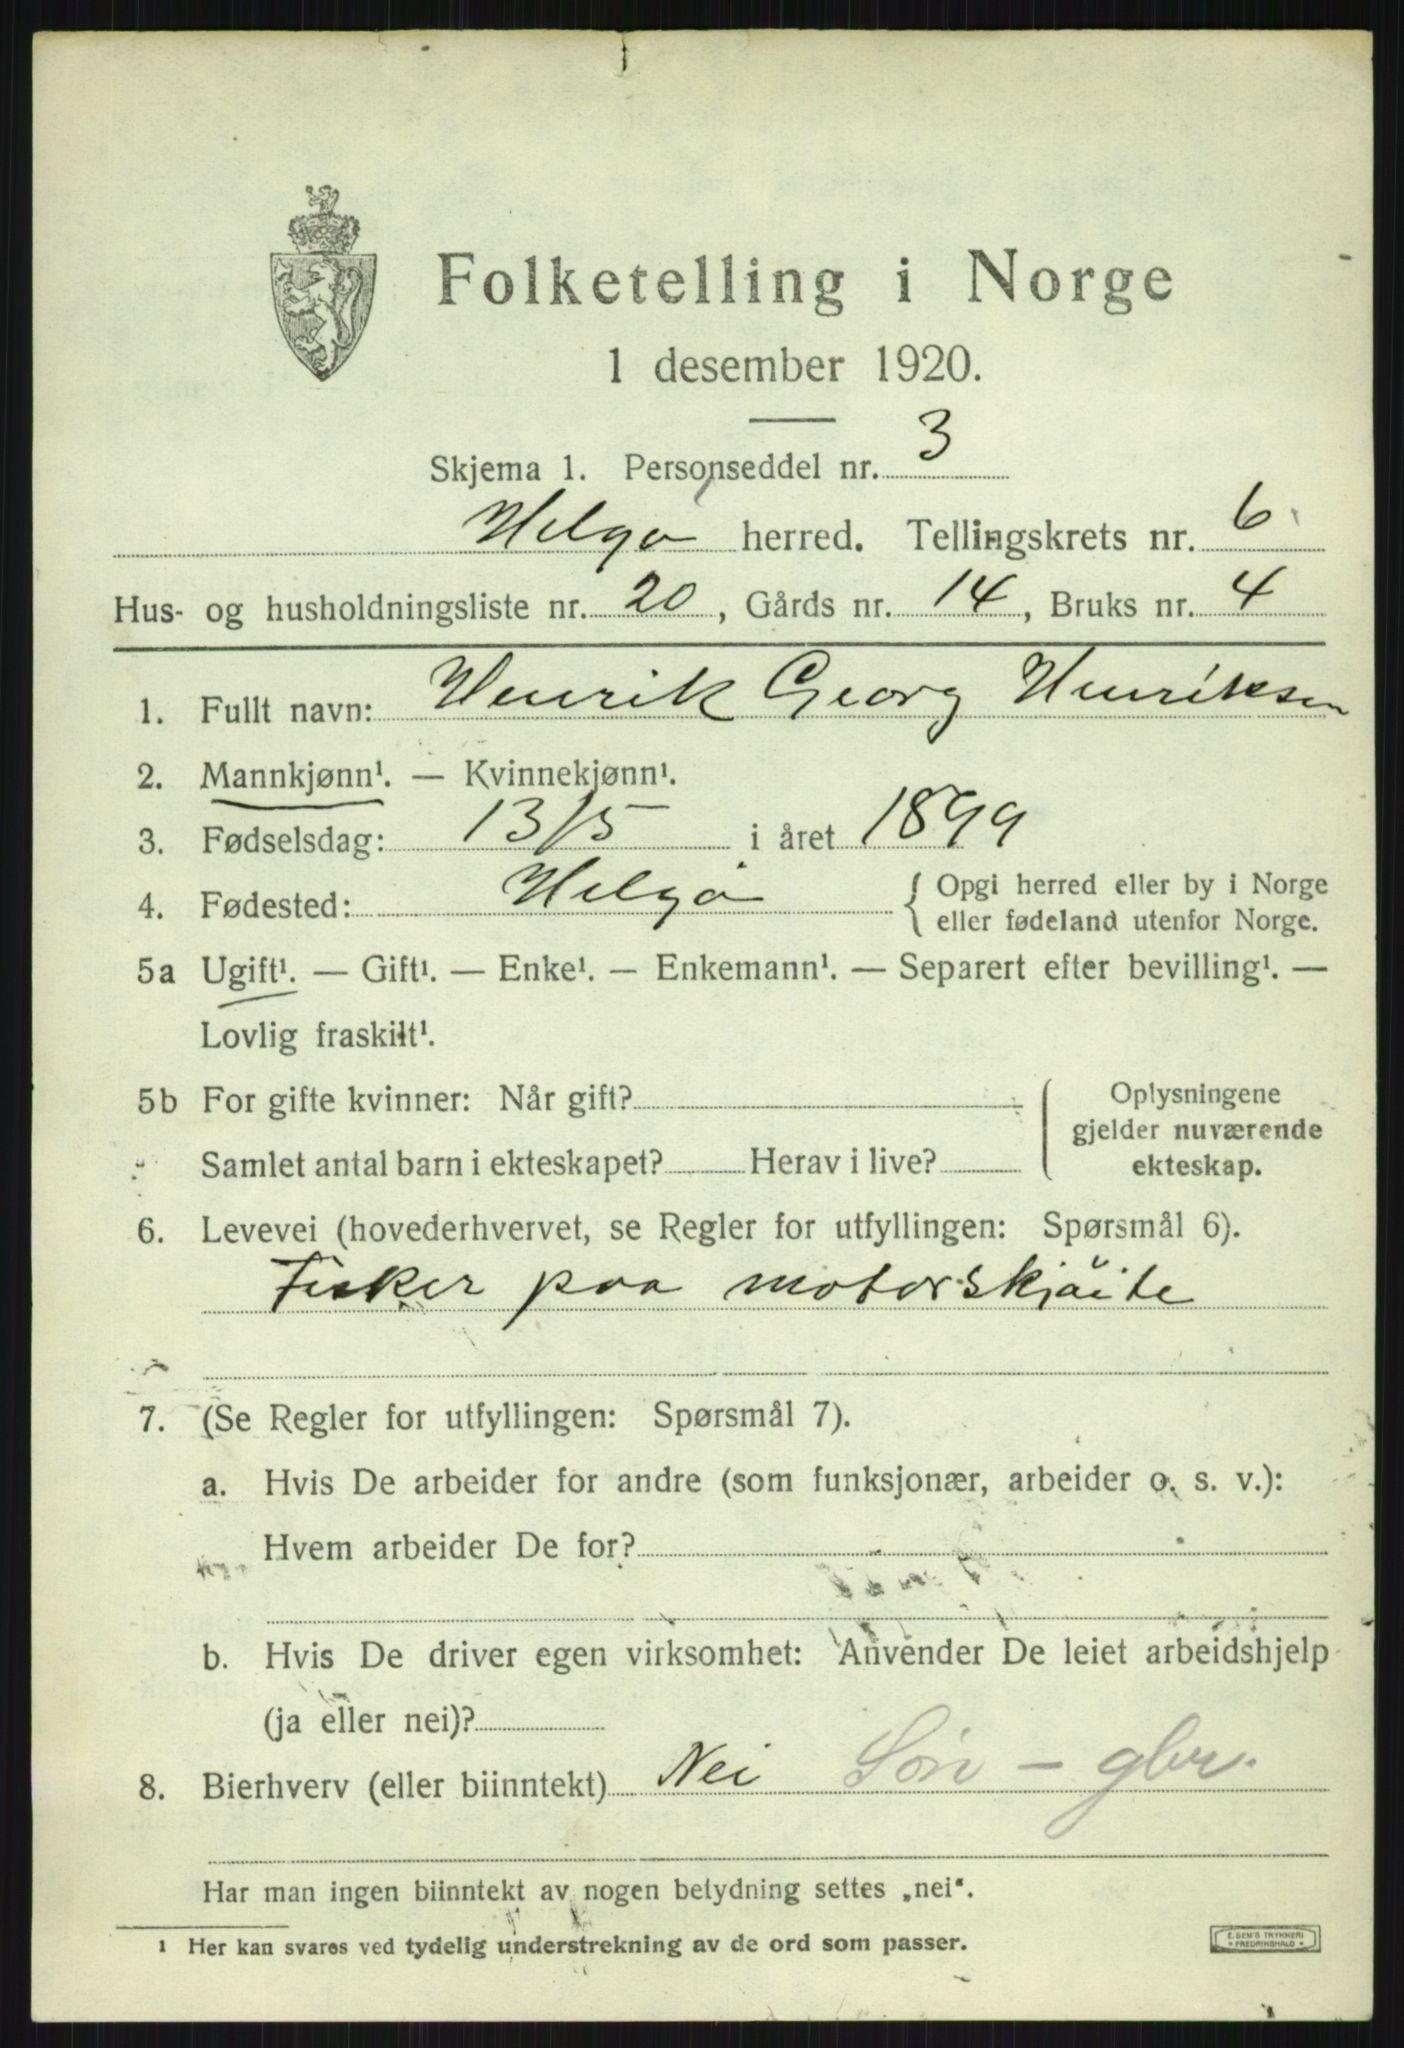 Folketelling i Norge
1 desember 1920.
Skjema 1. Personseddel nr. 3
Helgø herred. Tellingskrets nr. 6
Hus- og husholdningsliste nr. 20, Gårds nr. 14, Bruks nr. 4
1. Fullt navn: Henrik Georg Henriksen
2. Mannkjønn¹. — Kvinnekjønn¹.
3. Fødselsdag: 13/5 i året 1899
4. Fødested: Helgø { Opgi herred eller by i Norge
eller fødeland utenfor Norge.
5a Ugift¹. — Gift¹. — Enke¹. — Enkemann¹. — Separert efter bevilling¹. —
Lovlig fraskilt¹.
5b For gifte kvinner: Når gift?
Samlet antal barn i ekteskapet? Herav i live?
Oplysningene
gjelder nuværende
ekteskap.
6. Levevei (hovederhvervet, se Regler for utfyllingen: Spørsmål 6).
Fisker paa motorskjøite
7. (Se Regler for utfyllingen: Spørsmål 7).
a. Hvis De arbeider for andre (som funksjonær, arbeider o. s. v.):
Hvem arbeider De for?
b. Hvis De driver egen virksomhet: Anvender De leiet arbeidshjelp
(ja eller nei)?
8. Bierhverv (eller biinntekt) Nei Søn – gbr.
Har man ingen biinntekt av nogen betydning settes „nei“.
1 Her kan svares ved tydelig understrekning av de ord som passer.
E. SEM'S TRYKKERI
FREDRIKSHALD